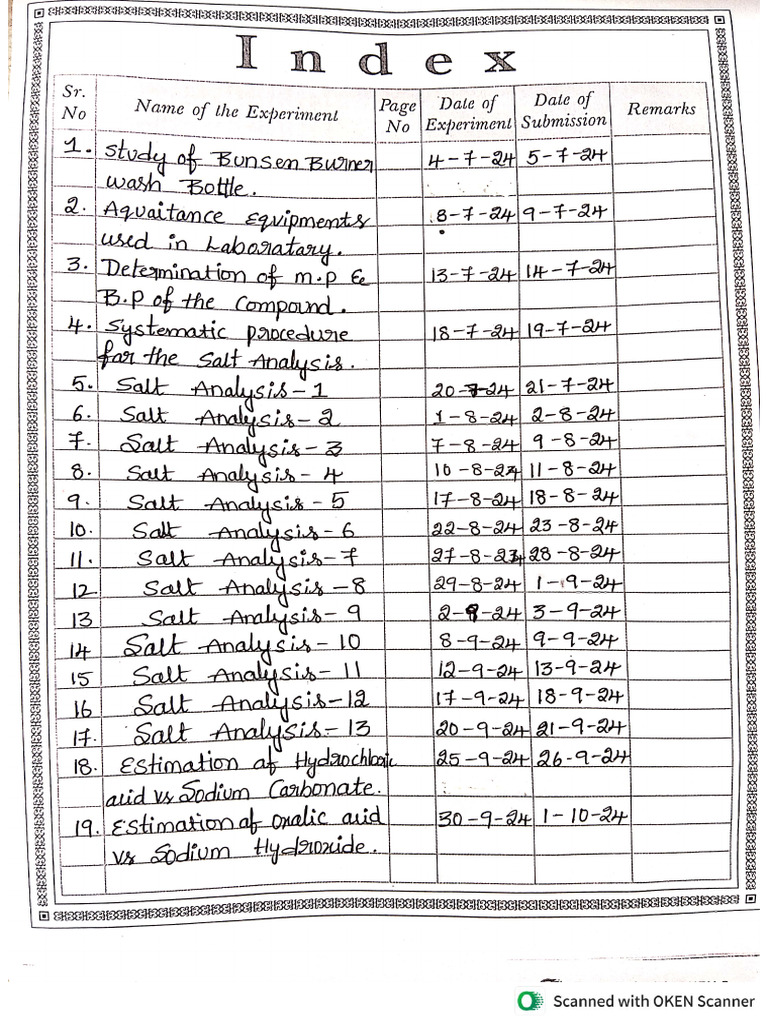 Index
Sr. No Name of the Experiment Page No Date of Experiment Date of Submission Remarks
1. Study of Bunsen Burner 4-7-24 5-7-24
wash Bottle.
2. Aquaitance Equipments 8-7-24 9-7-24
used in Laboratary.
3. Determination of m.p & 13-7-24 14-7-24
B.p of the Compound.
4. Systematic procedure 18-7-24 19-7-24
for the Salt Analysis.
5. Salt Analysis-1 20-7-24 21-7-24
6. Salt Analysis-2 1-8-24 2-8-24
7. Salt Analysis-3 7-8-24 9-8-24
8. Salt Analysis-4 10-8-24 11-8-24
9. Salt Analysis-5 17-8-24 18-8-24
10. Salt Analysis-6 22-8-24 23-8-24
11. Salt Analysis-7 27-8-24 28-8-24
12 Salt Analysis-8 29-8-24 1-9-24
13 Salt Analysis-9 2-9-24 3-9-24
14 Salt Analysis-10 8-9-24 9-9-24
15 Salt Analysis-11 12-9-24 13-9-24
16 Salt Analysis-12 17-9-24 18-9-24
17. Salt Analysis-13 20-9-24 21-9-24
18. Estimation of Hydrochloric 25-9-24 26-9-24
acid vs Sodium Carbonate.
19. Estimation of oxalic acid 30-9-24 1-10-24
vs Sodium Hydroxide.
Scanned with OKEN Scanner